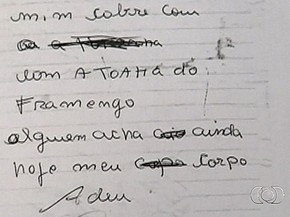 mim cobre com
com A TOAHA do
Framengo
alguem acha ainda
hoje meu corpo
Adeu